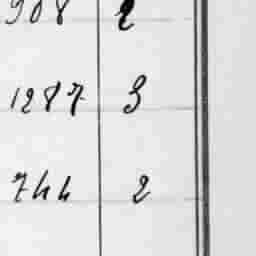 908 2
1287 3
744 2